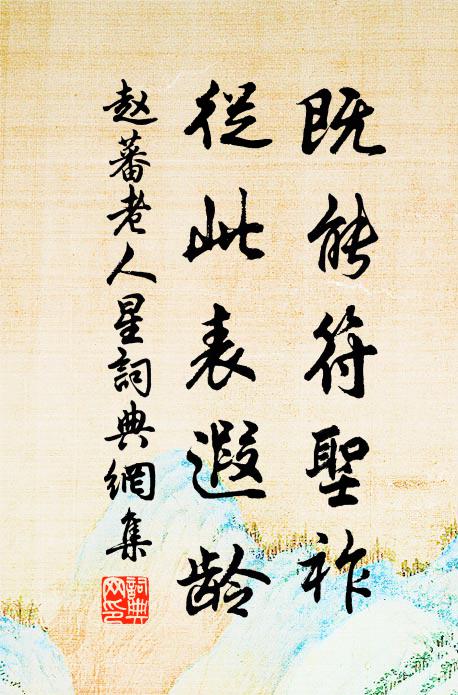 既能符聖祚
從此表遐龄
赵蕃老人星詞典網集
詞典網印